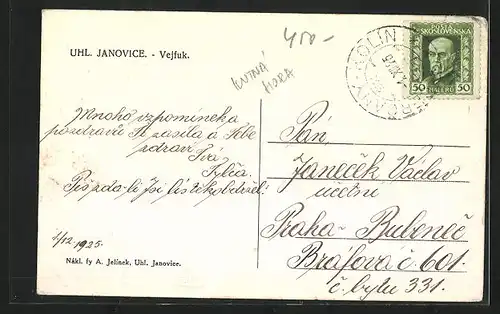 UHL. JANOVICE. - Vejfuk.
450-
KUTNÁ
HORA
KOLÍN
POŠTA
ČESKOSLOVENSKÁ
50 HALÉŘŮ 50
Mnoho vzpomínek a
pozdravů Ti zasílá a Tobě
zdraví
Piš, zdo-li jsi lístek obdržel!
1/12 1925.
Nákl. fy A. Jelínek, Uhl. Janovice.
Pán,
Janeček Václav
účetní
Praha - Bubeneč
č. 601.
č. bytu 331.